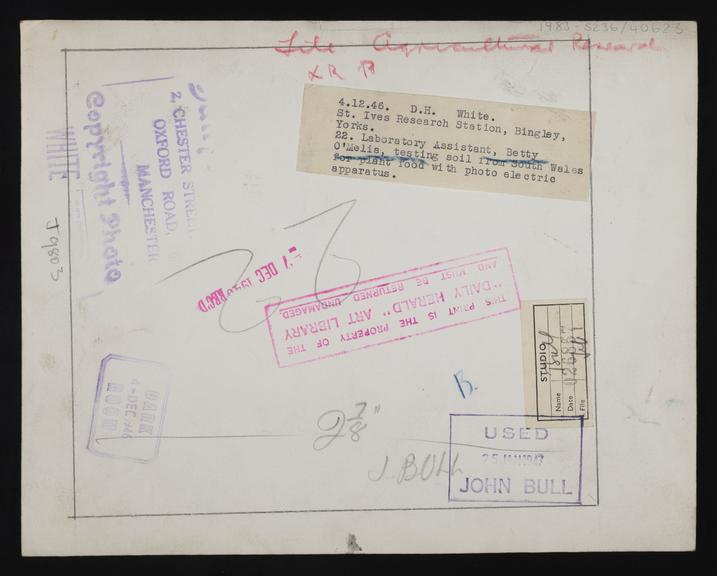 1983-5236/40623
File Agricultural Research
XR B
4.12.46. D.H. White.
St. Ives Research Station, Bingley,
Yorks.
22. Laboratory Assistant, Betty
O'Melia, testing soil from South Wales
for plant food with photo electric
apparatus.
2, CHESTER STREET
OXFORD ROAD,
MANCHESTER
Copyright Photo
WHITE
J9803
7 DEC
THIS PRINT IS THE PROPERTY OF THE
"DAILY HERALD" ART LIBRARY
AND MUST BE RETURNED UNDAMAGED.
STUDIO
Name
Date
File
B.
DARK
4-DEC 46
ROOM
2 7/8"
J. BULL
USED
JOHN BULL